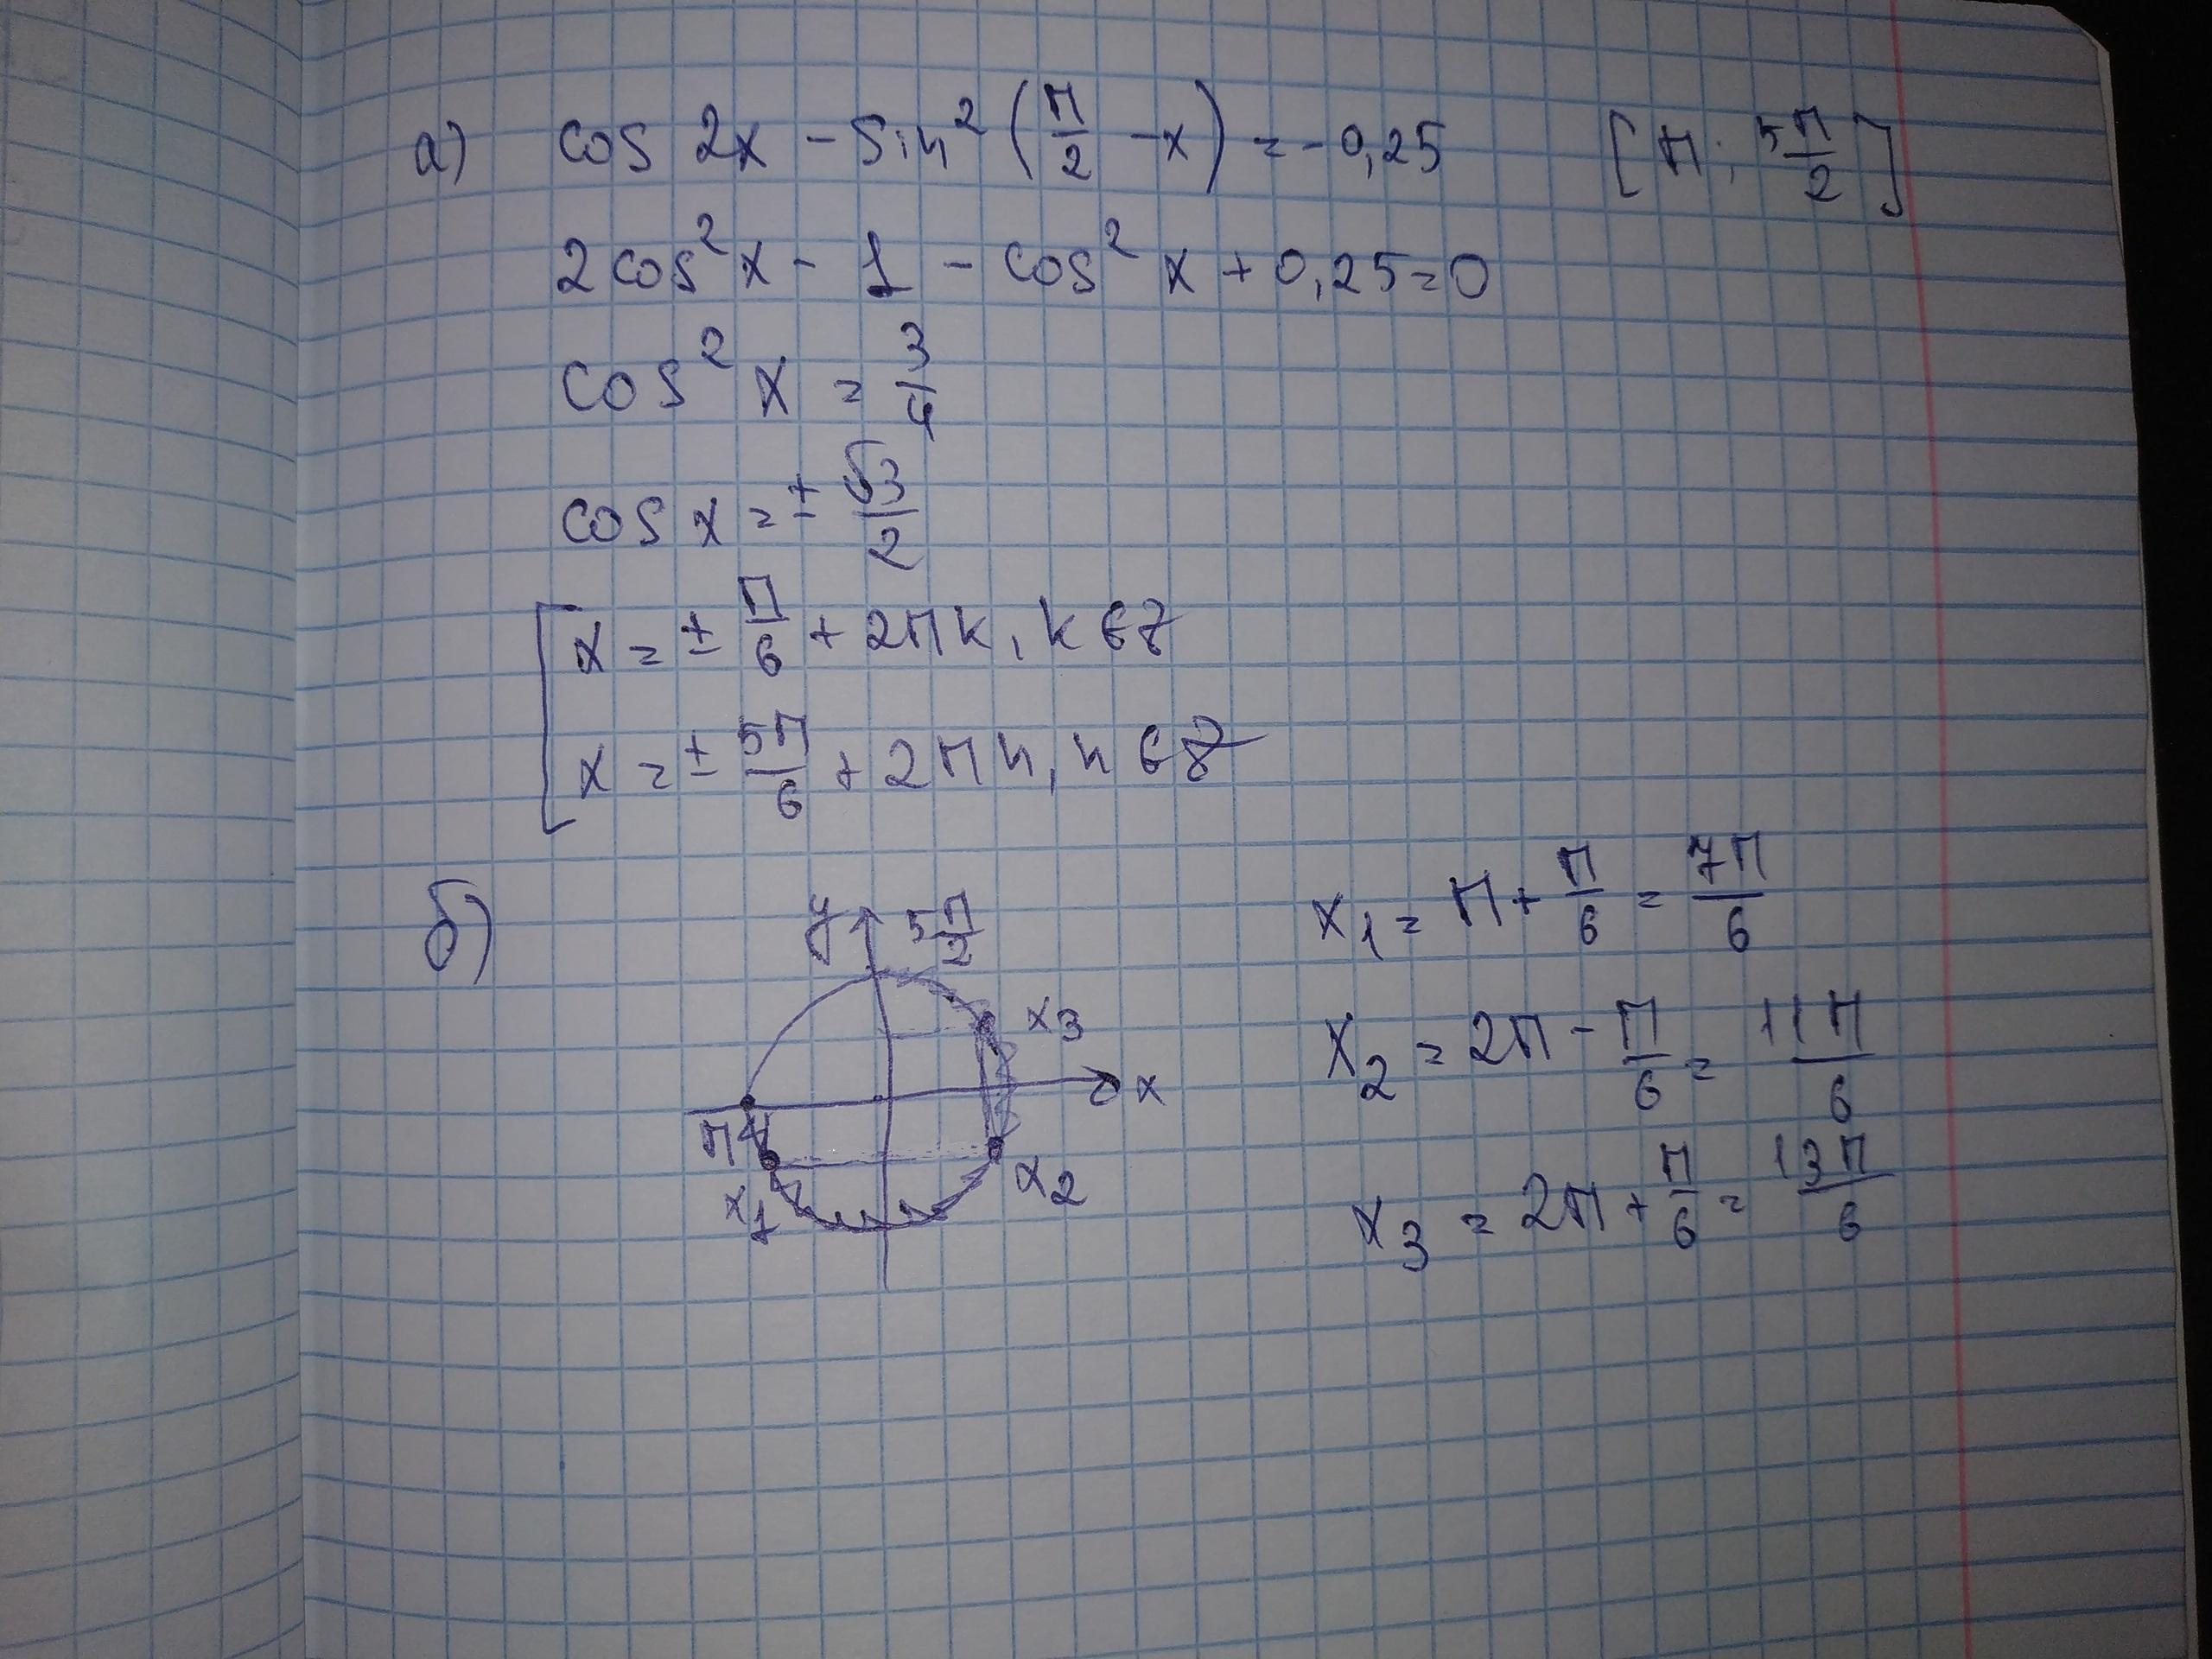 а) cos 2x - sin² (π/2 - x) = - 0,25 [π; 5π/2]
2cos²x - 1 - cos²x + 0,25 = 0
cos²x = 3/4
cos x = ± √3/2
x = ± π/6 + 2πk, k ∈ Z
x = ± 5π/6 + 2πn, n ∈ Z
б)
y 5π/2
x3
x
π
x1
x2
x1 = π + π/6 = 7π/6
x2 = 2π - π/6 = 11π/6
x3 = 2π + π/6 = 13π/6